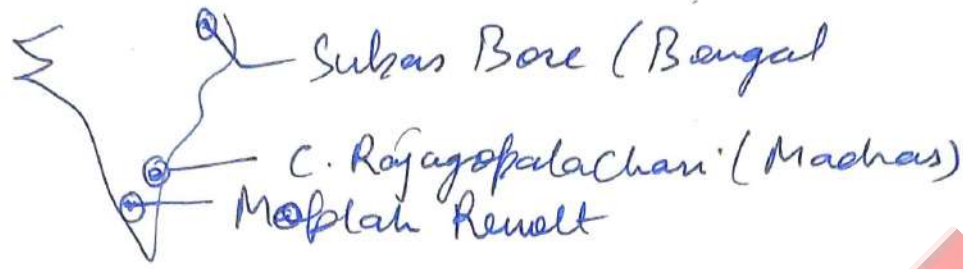 Subas Bose (Bengal
C. Rajagopalachari (Madras)
Moplah Revolt